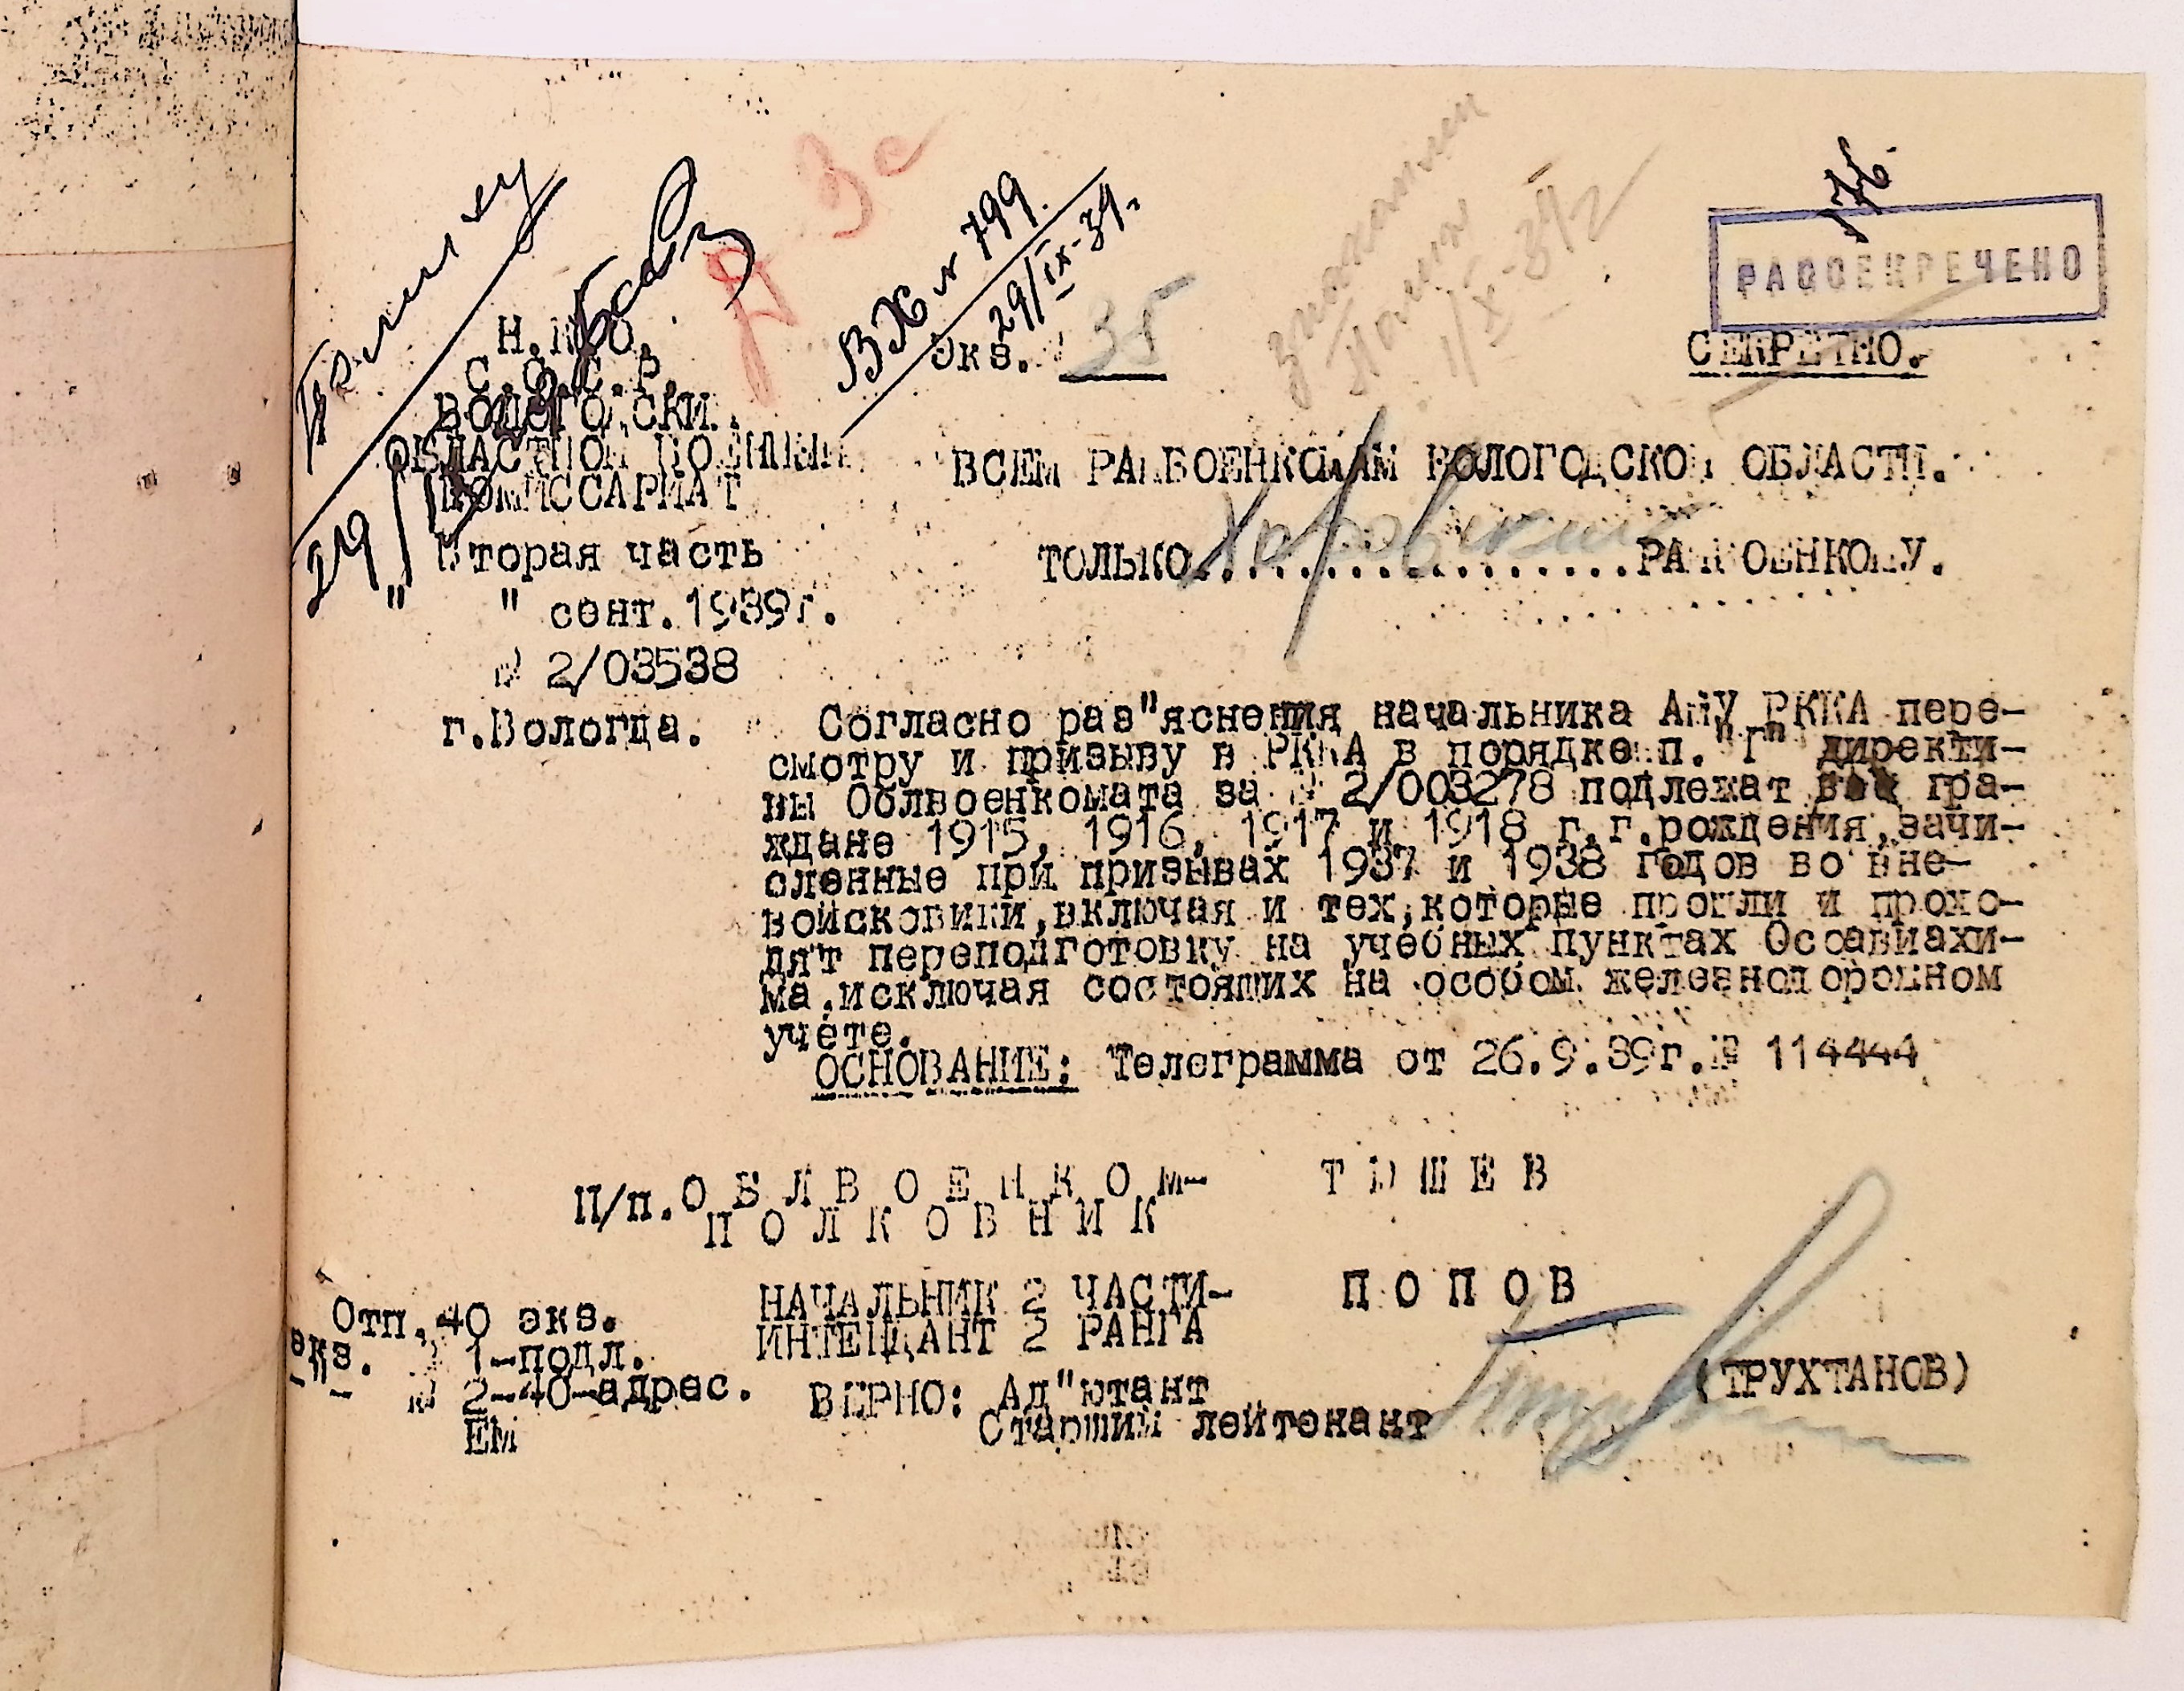 176.
РАССЕКРЕЧЕНО
СЕКРЕТНО.
Вх № 799
29/IX-39.
Экз. № 35
Н.К.О.
С.С.С.Р.
ВОЛОГОДСКИЙ
ОБЛАСТНОЙ ВОЕННЫЙ
КОМИССАРИАТ
Вторая часть
" " сент.1939г.
№ 2/03538
г.Вологда.
ВСЕМ РАЙВОЕНКОМАМ ВОЛОГОДСКОЙ ОБЛАСТИ.
ТОЛЬКО Харовскому РАЙВОЕНКОМУ.
Согласно раз"яснения начальника АМУ РККА пере-
смотру и призыву в РККА в порядке п."Г" директи-
вы Облвоенкомата за № 2/003278 подлежат все гра-
ждане 1915, 1916, 1917 и 1918 г.г.рождения,зачи-
сленные при призывах 1937 и 1938 годов во вне-
войсковики,включая и тех,которые прошли и прохо-
дят переподготовку на учебных пунктах Осоавиахи-
ма.исключая состоящих на особом железнодорожном
учете.
ОСНОВАНИЕ: Телеграмма от 26.9.39г.№ 114444
П/п.ОБЛВОЕНКОМ- ТЮШЕВ
ПОЛКОВНИК
НАЧАЛЬНИК 2 ЧАСТИ- ПОПОВ
ИНТЕНДАНТ 2 РАНГА
ВЕРНО: Ад"ютант
Старший лейтенант (ТРУХТАНОВ)
Отп.40 экз.
экз. № 1-подл.
-"- № 2-40-адрес.
ЕМ